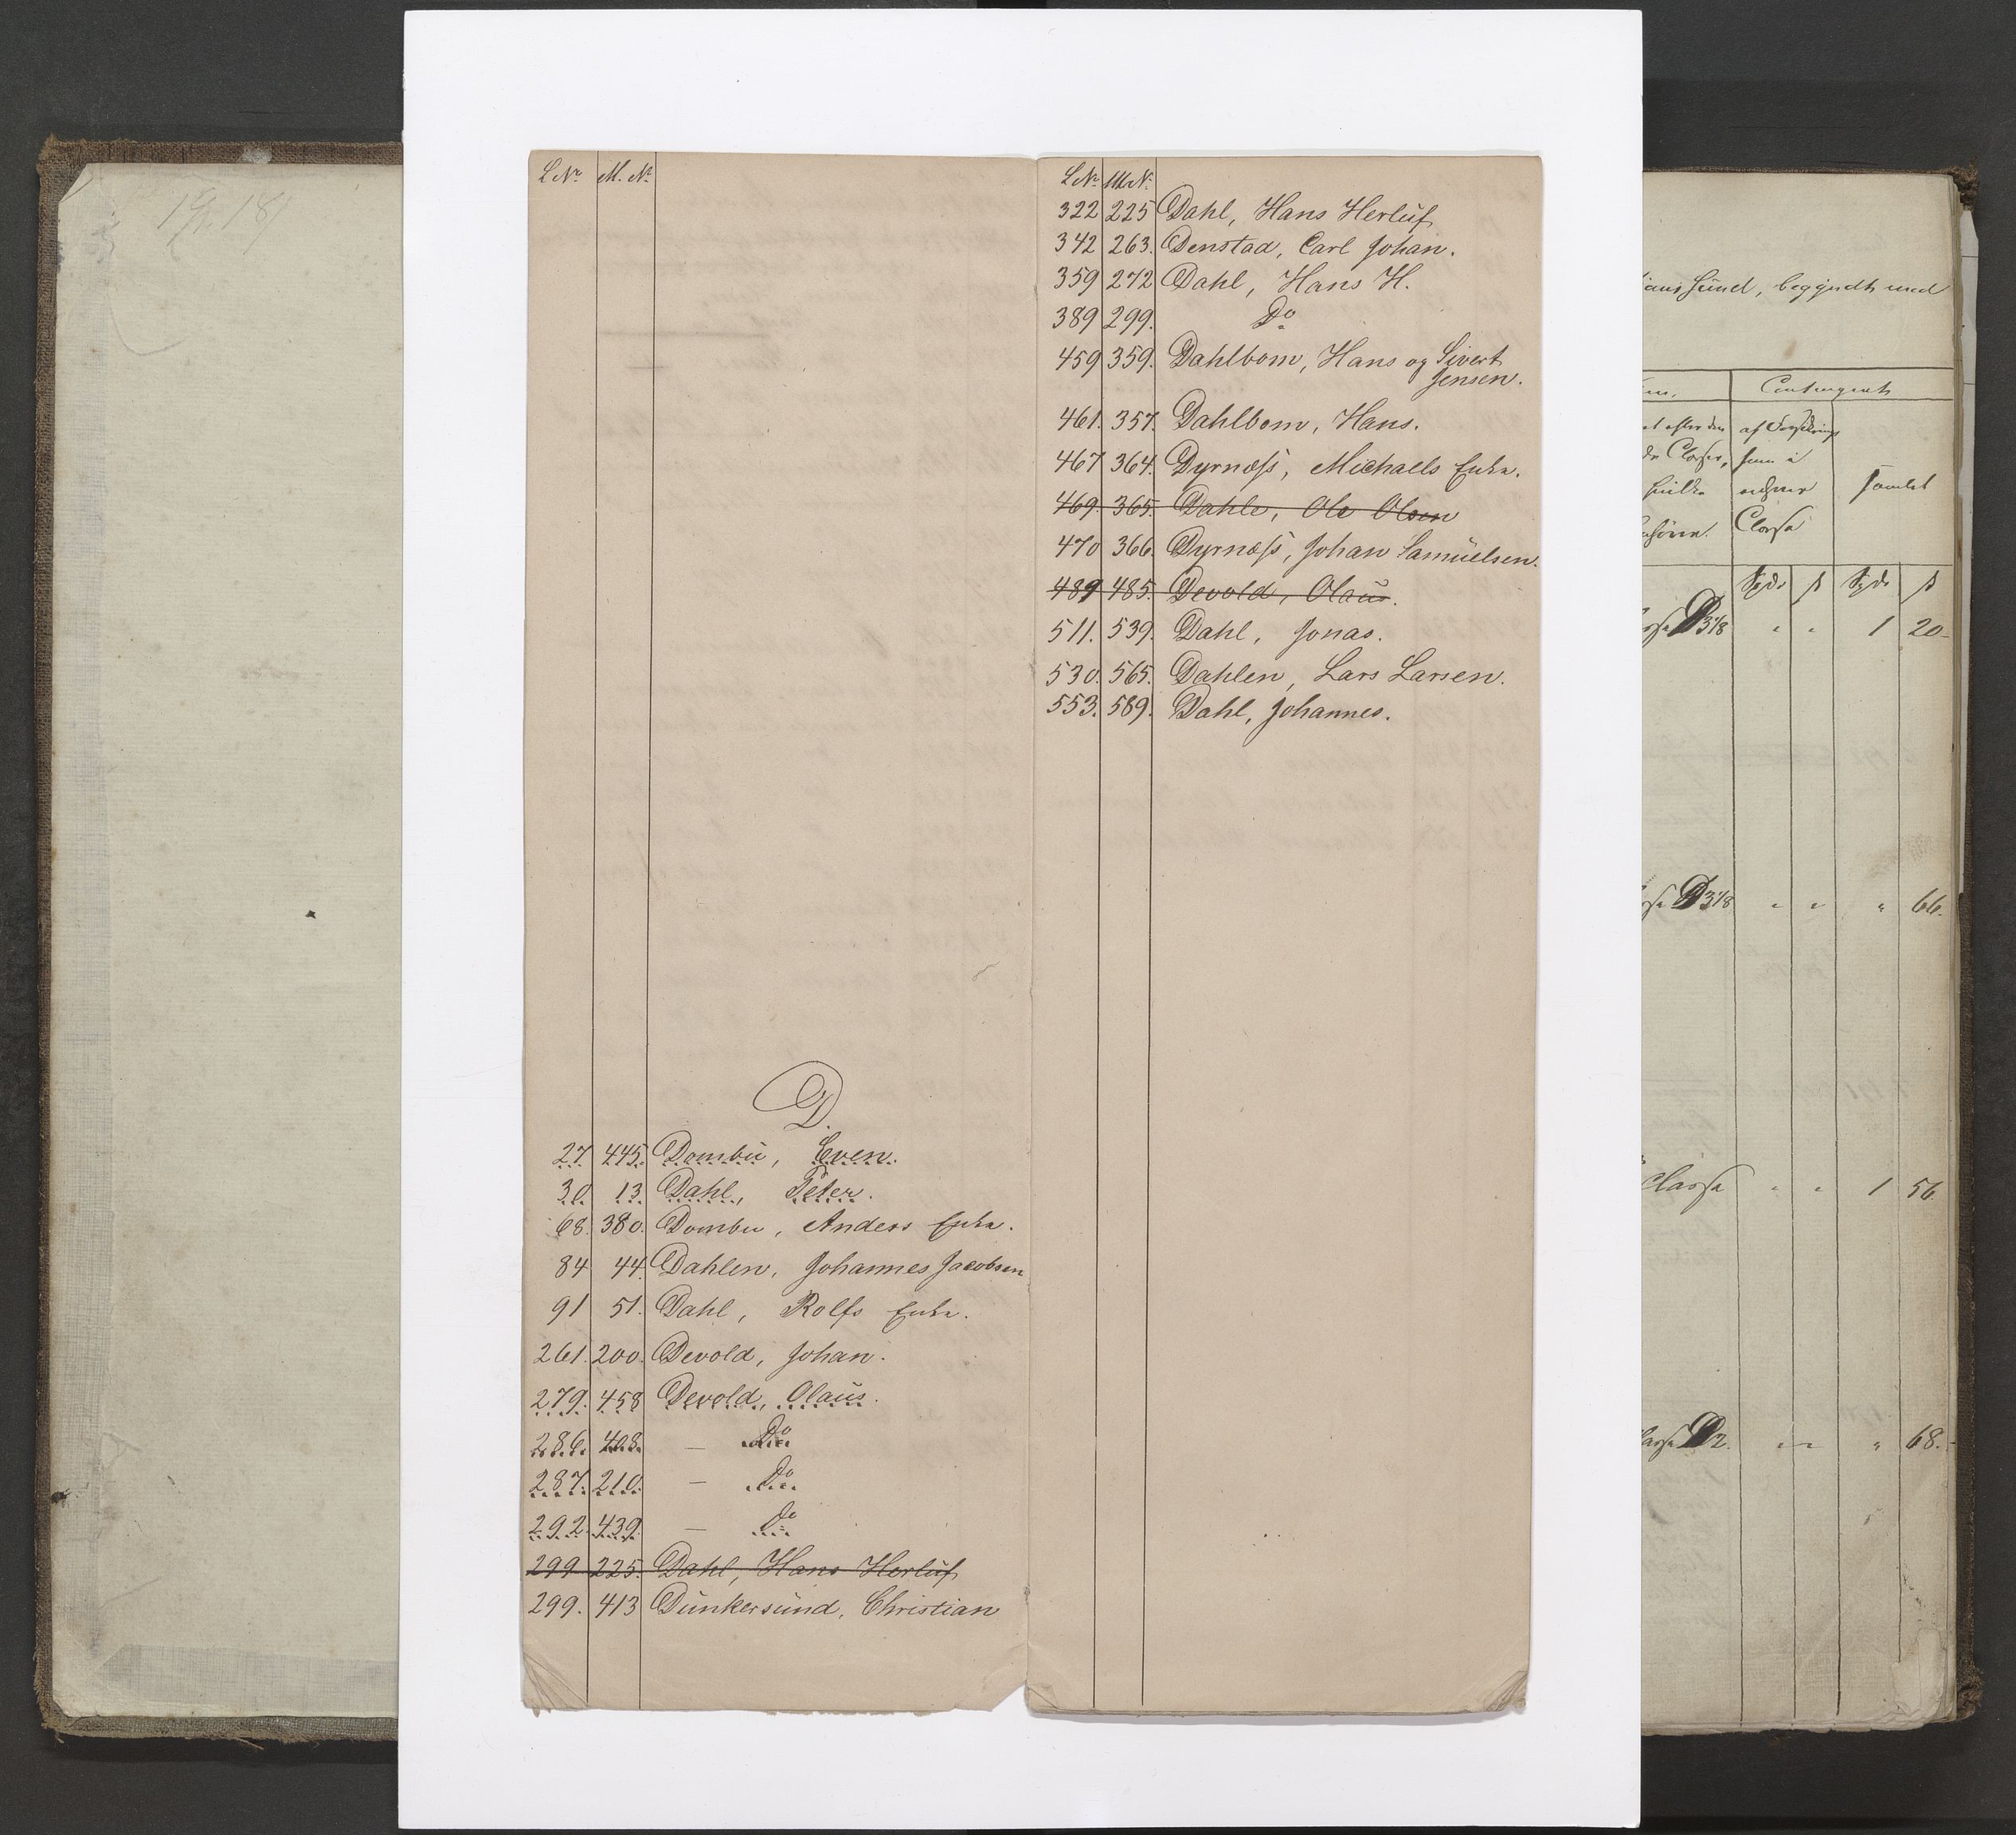 L Nr. M. Nr.
D.
27 445. Dombü, Even.
30 13 Dahl, Peter.
68. 380. Dombu, Anders Enke.
84 44. Dahlen, Johannes Jacobsen
91 51. Dahl, Rolfs Enke.
261. 200. Devold, Johan.
279. 458 Devold, Olaüs.
286. 408. — Do
287. 210. — Do
292. 439. — Do
299 225. Dahl, Hans Herlüf
299. 413 Dünkersünd, Christian
L Nr. M. Nr.
322 225 Dahl, Hans Herlüf
342 263. Denstad, Carl Johan.
359 272 Dahl, Hans H.
389 299. Do
459 359. Dahlbom, Hans og Sivert
Jensen.
461. 357. Dahlbom, Hans.
467 364. Dyrnæss, Michaels Enke.
469. 365. Dahle, Ole Olsen
470 366. Dyrnæss, Johan Samüelsen.
489 485. Devold, Olaüs.
511. 539. Dahl, Jonas.
530. 565. Dahlen, Lars Larsen.
553. 589. Dahl, Johannes.
ianssünd, begyndt med
Contingent
Classe
Spd ß Spd ß
D 3 1/8 " " 1 20
D 3 1/8 " " " 66.
Classe " " 1 56
D 2. " " " 68.